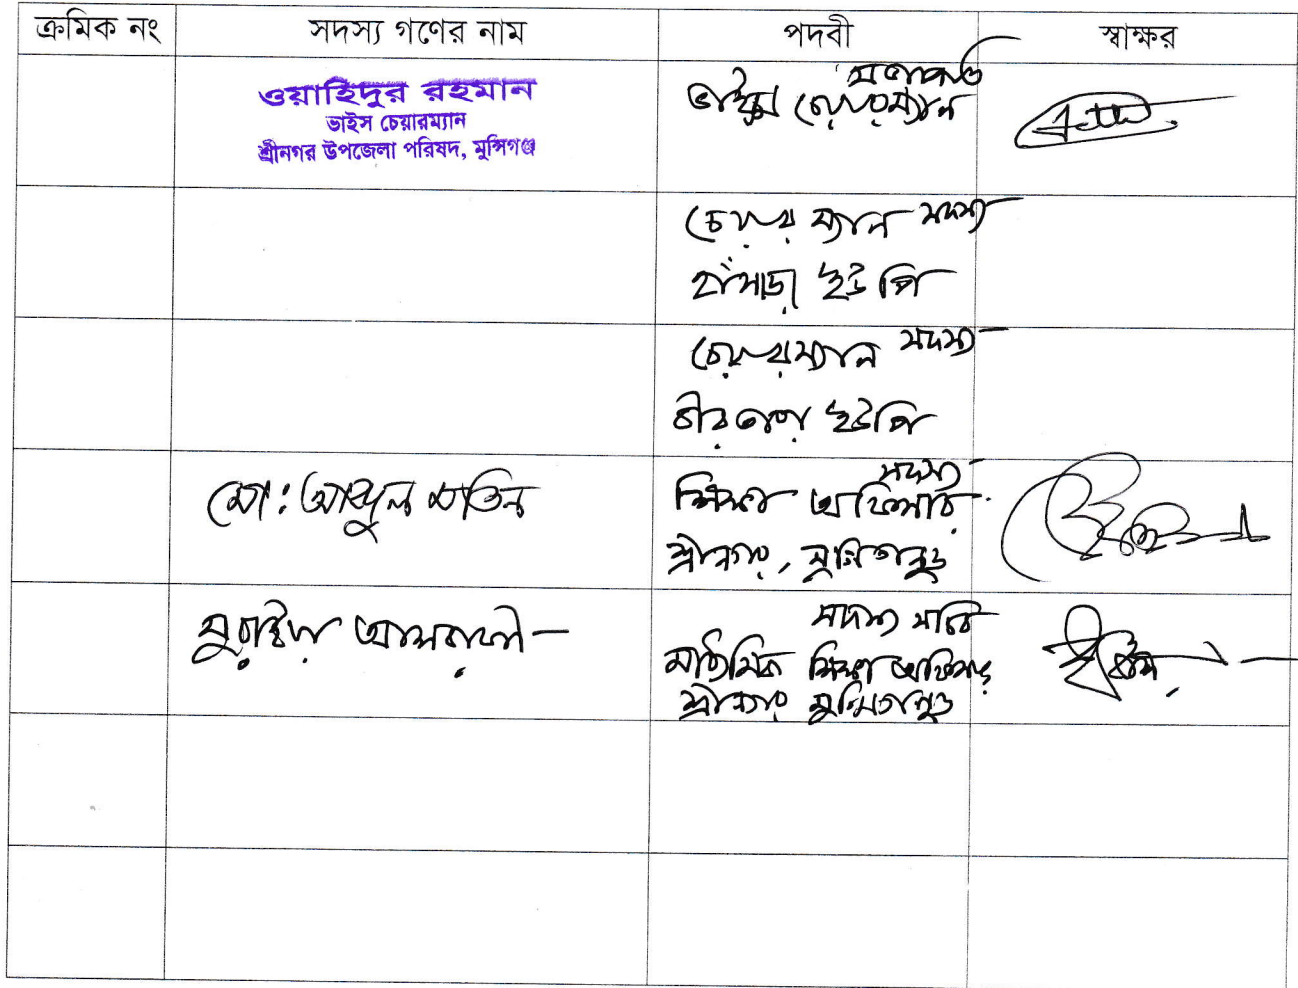 ক্রমিক নং সদস্য গণের নাম পদবী স্বাক্ষর
ওয়াহিদুর রহমান
ভাইস চেয়ারম্যান
শ্রীনগর উপজেলা পরিষদ, মুন্সিগঞ্জ
সভাপতি
ভাইস চেয়ারম্যান
চেয়ারম্যান সদস্য
হাঁসাড়া ইউ পি
চেয়ারম্যান সদস্য
বীরতারা ইউপি
মো: আব্দুল মতিন
সদস্য
শিক্ষা অফিসার
শ্রীনগর, মুন্সিগঞ্জ
সুরাইয়া আশরাফী
সদস্য সচিব
মাধ্যমিক শিক্ষা অফিসার
শ্রীনগর মুন্সিগঞ্জ